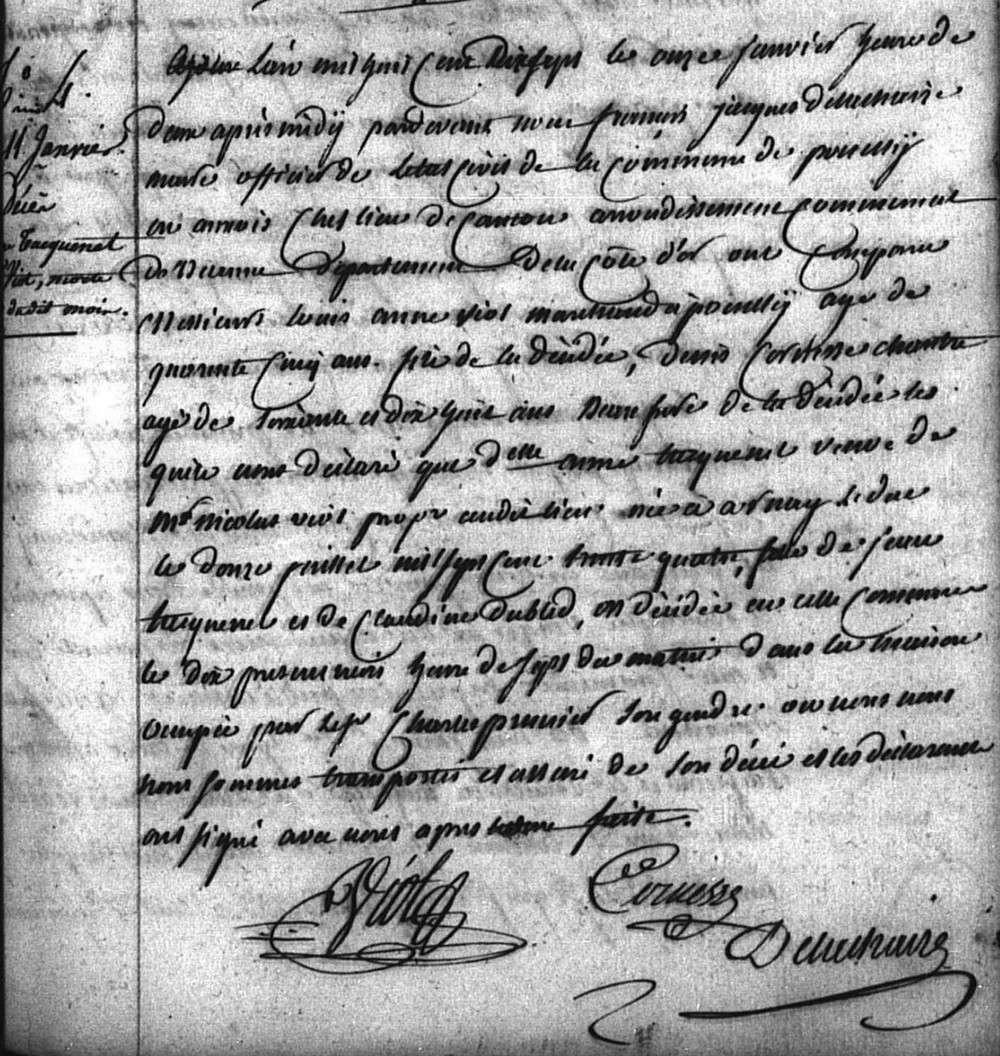 11 Janvier
Décès
Tacquenet
Viot, morte
dudit mois.
L'an mil huit cent dix sept le onze janvier heure de
deux après midÿ pardevant nous françois jacques delachaise
maire officier de letat civil de la commune de pouillÿ
en auxois chef lieu de canton arrondissement communal
de Beaune département de la côte d'or ont comparu
Messieurs louis anne viot marchand a pouillÿ age de
quarente cinq ans. fils de la dèédée, denis
agé de soixante et dix huit ans beau frere de la dèédée les
quils nous déclaré que delle anne taquenet veuve de
Mr Nicolas viot propr audit lieu née a arnay le duc
le douze juillet mil sept cent trente quatre, fille de jean
taquenet et de Claudine dubled, est dèédée en cette commune
le dix present mois heure de sept du matin dans la maison
occupée par le sr Charles son gendre. ou nous nous
nous sommes transportés et assuré de son décé et les déclarants
ont signé avec nous apres lecture faite.
Viot
Delachaise